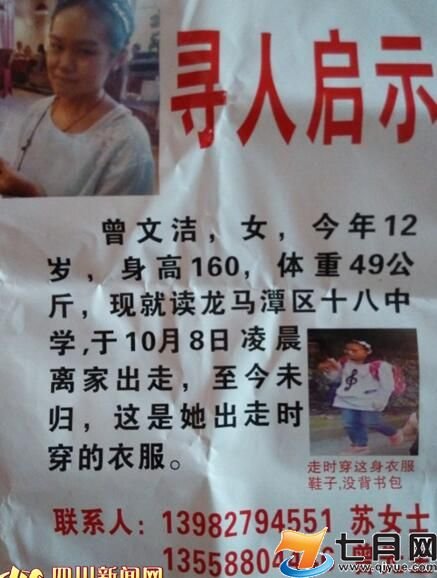 寻人启示
曾文洁，女，今年12
岁，身高160，体重49公
斤，现就读龙马潭区十八中
学,于10月8日凌晨
离家出走，至今未
归，这是她出走时
穿的衣服。
走时穿这身衣服
鞋子,没背书包
联系人：13982794551 苏女士
13558804
四川新闻网
七月网
www.qiyue.com